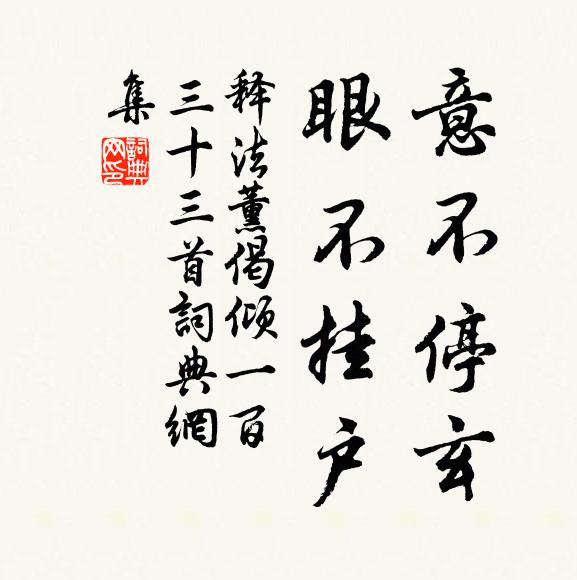 意不停玄
眼不挂户
释法薰偈倾一百
三十三首詞典網
集
詞典
网印